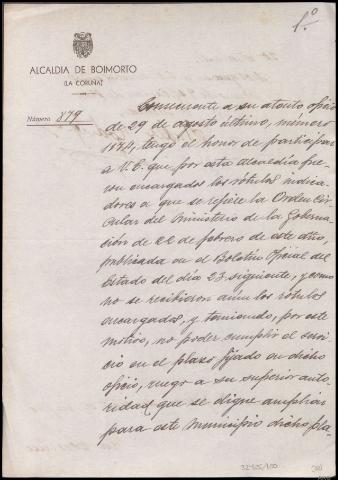 1.º
ALCALDIA DE BOIMORTO
(LA CORUÑA)
Número 879
Consecuente a su atento oficio
de 29 de agosto último, número
1874, tengo el honor de participar
a V.E. que por esta alcaldía fue-
ron encargados los rótulos indica-
dores a que se refiere la Orden Cir-
cular del Ministerio de la Gober-
nación de 22 de febrero de este año,
publicada en el Boletín Oficial del
Estado del día 23 siguiente, y como
no se recibieron aún los rótulos
encargados, y temiendo, por este
motivo, no poder cumplir el servi-
cio en el plazo fijado en dicho
oficio, ruego a su superior auto-
ridad que se digne ampliar
para este Municipio dicho pla-